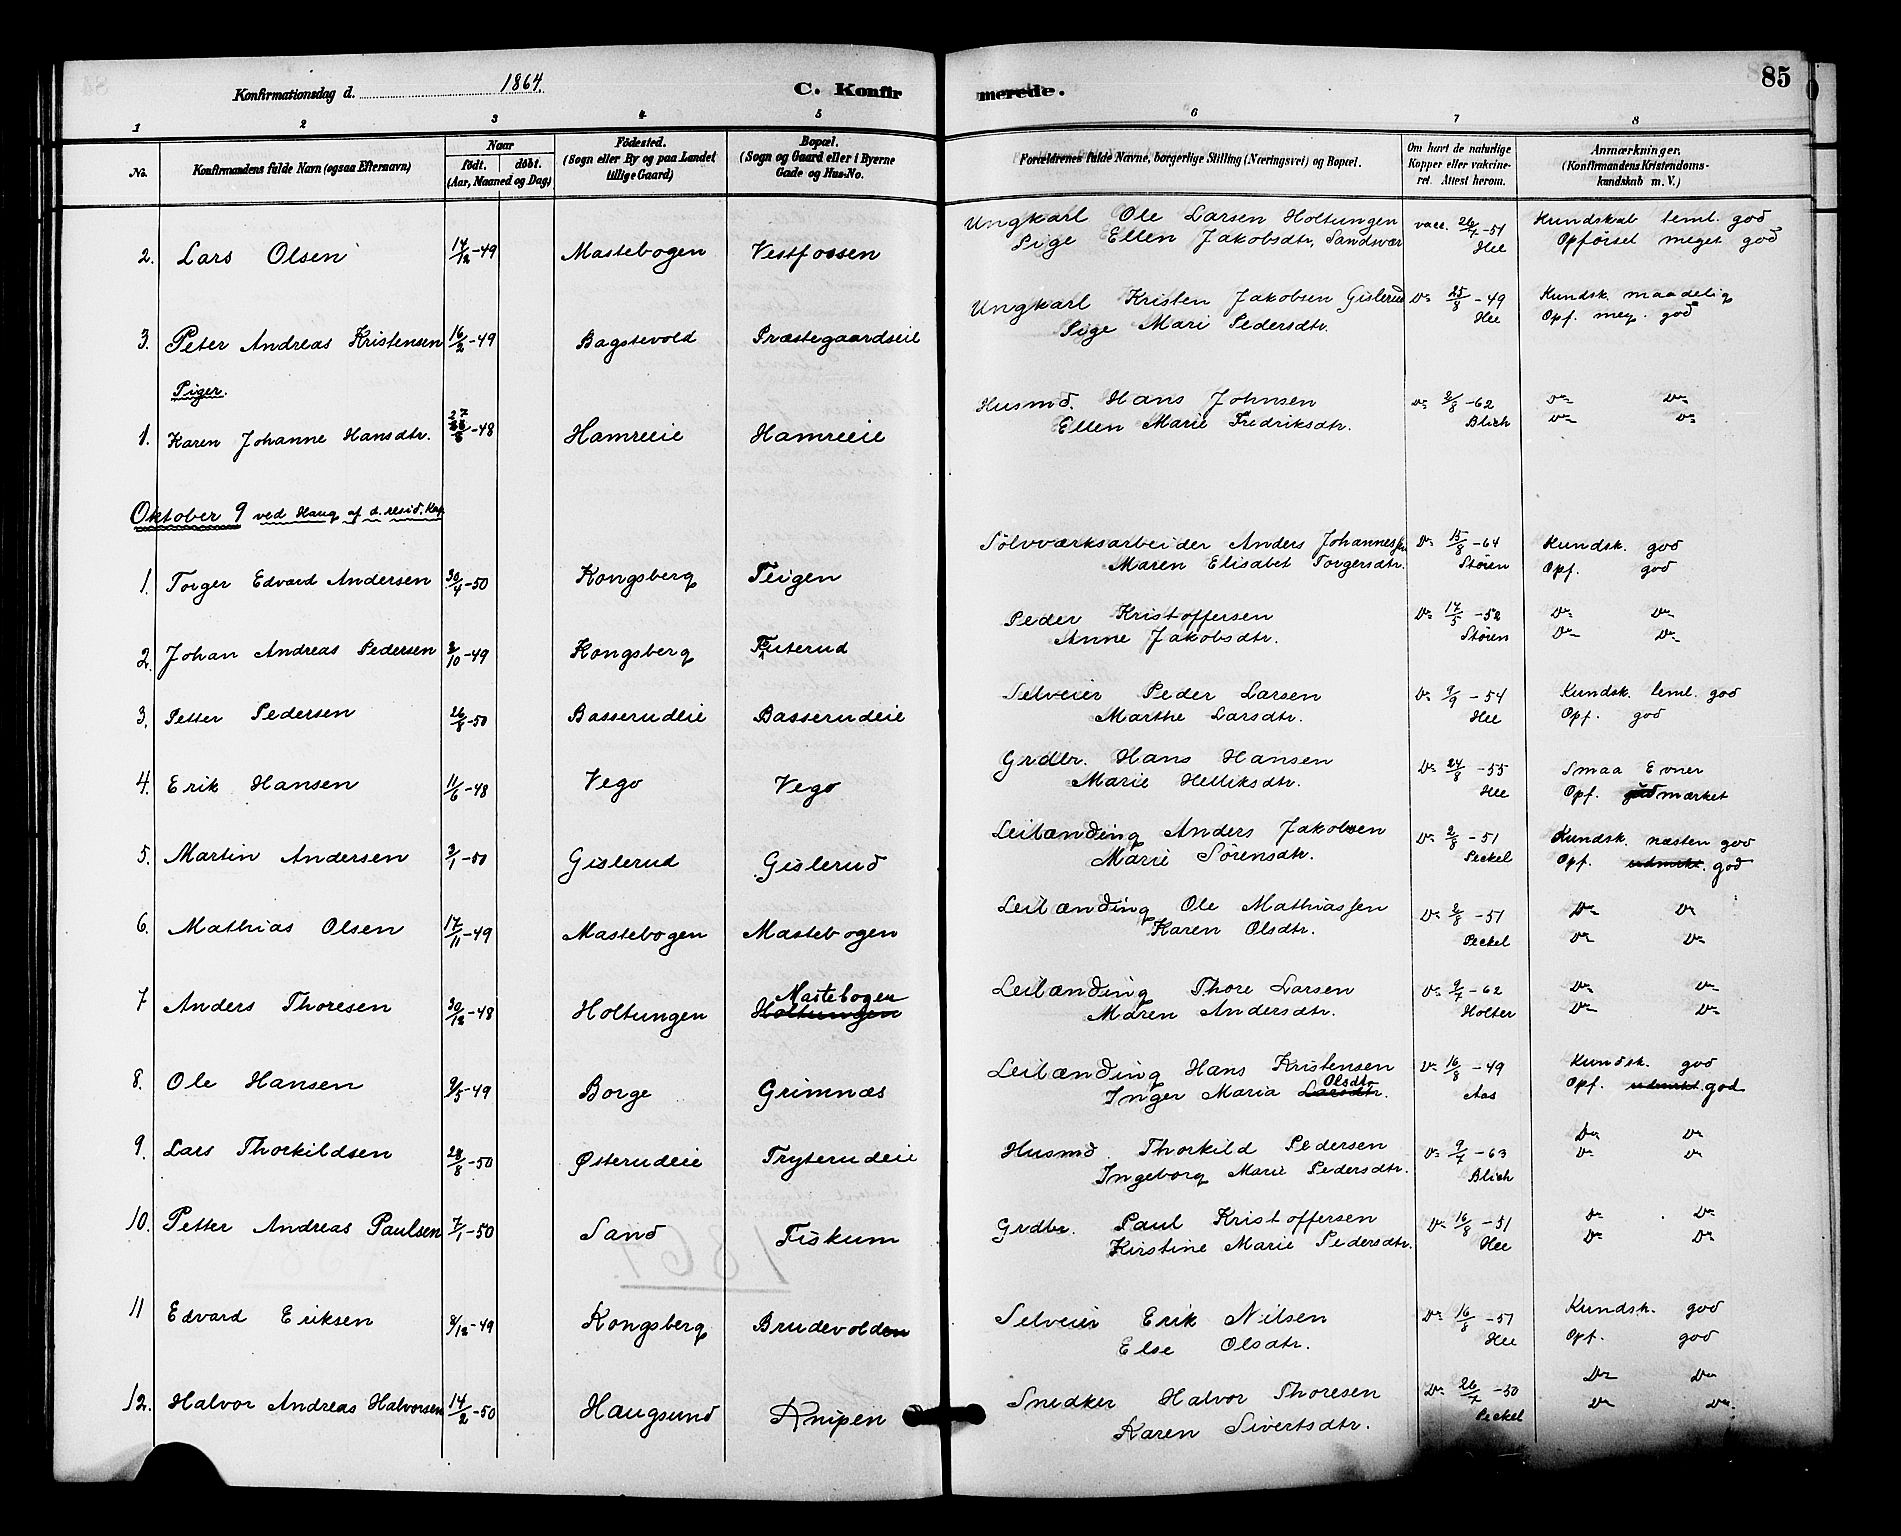 Konfirmationsdag d. 1864. C. Konfirmerede. 85
1 2 3 4 5 6 7 8
No. Konfirmandens fulde Navn (ogsaa Efternavn) Naar födt. döbt. (Aar, Maaned og Dag) Födested. (Sogn eller By og paa Landet tillige Gaard) Bopæl. (Sogn og Gaard eller i Byerne Gade og Hus-No. Forældrenes fulde Navne, borgerlige Stilling (Næringsvei) og Bopæl. Om havt de naturlige Kopper eller vakcineret. Attest herom. Anmærkninger. (Konfirmandens Kristendomskundskab m. V.)
Ungkarl Ole Larsen Holtungen vacc. 26/7-51 Kundskab teml. god
2. Lars Olsen 14/12-49 Mastebogen Vestfossen Pige Ellen Jakobsdtr, Sandsvær Hee Opførsel meget god
Ungkarl Kristen Jakobsen Gislerud Do 25/8-49 Kundsk. maadelig
3. Peter Andreas Kristensen 16/2-49 Bagstevold Præstegaardseie Pige Mari Pedersdtr. Hee Opf. meg. god
Piger.
Husmd. Hans Johnsen Do 3/8-62 Do Do
1. Karen Johanne Hansdtr. 27/8-48 Hamreeie Hamreeie Ellen Marie Fredriksdtr. Blich Do Do
Oktober 9 ved Haug af d. resid. Kap.
Sølvværksarbeider Anders Johannessen Do 15/8-64 Kundsk. god
1. Torger Edvard Andersen 30/4-50 Kongsberg Teigen Maren Elisabet Torgersdtr. Støren Opf. god
Peder Kristoffersen Do 17/5-52 Do Do
2. Johan Andreas Pedersen 2/10-49 Kongsberg Futerud Anne Jakobsdtr. Støren Do Do
Selveier Peder Larsen Do 9/9-54 Kundsk. teml. god
3. Petter Pedersen 26/8-50 Basserudeie Basserudeie Marthe Larsdtr. Hee Opf. god
Grdbr. Hans Hansen Do 24/8-55 Smaa Evner
4. Erik Hansen 11/6-48 Vego Vego Marie Helliksdtr. Hee Opf. god mærket
Leilænding Anders Jakobsen Do 2/8-51 Kundsk. næsten god
5. Martin Andersen 3/1-50 Gislerud Gislerud Marie Sørensdtr. Peckel Opf. udmrkt. god
Leilænding Ole Mathiassen Do 2/8-51 Do Do
6. Mathias Olsen 17/11-49 Mastebogen Mastebogen Karen Olsdtr. Peckel Do Do
Leilænding Thore Larsen Do 9/7-62 Do Do
7 Anders Thoresen 30/12-48 Holtungen Holtungen Mastebogen Maren Andersdtr. Holter Do Do
Leilænding Hans Kristensen Do 16/8-49 Kundsk. god
8. Ole Hansen 9/5-49 Borge Grimnæs Inger Maria Larsdtr. Olsdtr Aas Opf. udmrkt. god
Husmd. Thorkild Pedersen Do 9/7-63 Do Do
9. Lars Thorkildsen 28/8-50 Østerudeie Tryterudeie Ingeborg Marie Pedersdtr. Blich Do Do
Grdbr. Paul Kristoffersen Do 16/8-51 Do Do
10. Petter Andreas Paulsen 7/1-50 Sand Fiskum Kirstine Marie Pedersdtr. Hee Do Do
Selveier Erik Nilsen Do 16/8-51 Kundsk. god
11 Edvard Eriksen 8/12-49 Kongsberg Brudevolden Else Olsdtr. Hee Opf. god
Snedker Halvor Thoresen Do 26/7-50 Do Do
12. Halvor Andreas Halvorsen 14/2-50 Haugsund Knipen Karen Sivertsdtr. Peckel Do Do